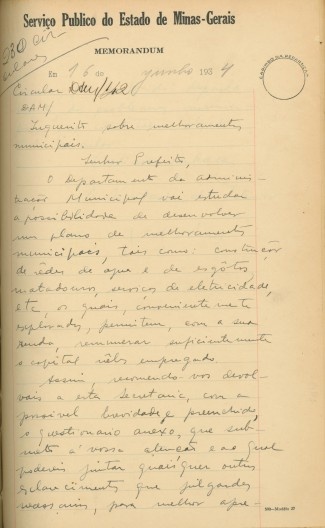 Serviço Publico do Estado de Minas-Gerais
MEMORANDUM
Em 16 de junho 1934
Circular DAM/142
DAM/
Inquerito sobre melhoramentos
municipais.
Senhor Prefeito,
O Departamento da adminis-
tração Municipal vai estudar
a possibilidade de desenvolver
um plano de melhoramentos
municipais, tais como: construcção
de rêdes de água e de esgôtos,
matadouros, serviços de eletricidade,
etc, os quais, convenientemente
explorados, permitem, com a sua
renda, remunerar suficientemente
o capital nêles empregado.
Assim, recomendo-vos devol-
vais a esta Secretaria, com a
possivel brevidade, e preenchido,
o questionario anexo, que sub-
meto á vossa atenção e ao qual
podereis juntar quaisquer outros
esclarecimentos que julgardes
necessarios, para melhor apre-